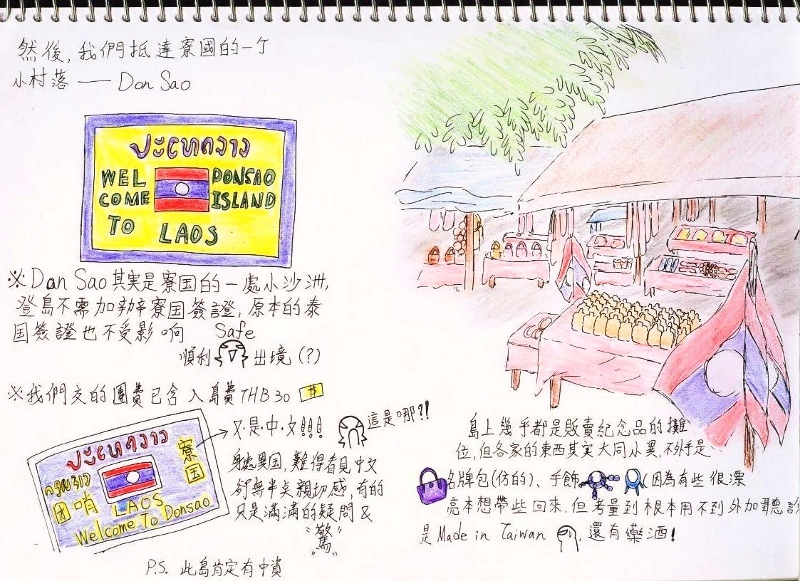 然後, 我們抵達寮國的一个
小村落 —— Don Sao
ປະເທດລາວ
WEL
COME
TO
DONSAO
ISLAND
LAOS
※Don Sao其実是寮国的一處小沙洲,
登島不需加辦寮国簽證, 原本的泰
国簽證也不受影响 Safe
順利 出境(?)
※我們交的團費已含入島費THB 30
ປະເທດລາວ
寮国
団哨
LAOS
Welcome To Donsao
又·是·中·文!!!
這是哪?!
身處異国, 難得看見中文
卻無半点親切感, 有的
只是滿滿的疑問&
"驚"
P.S. 此島肯定有中資
島上幾乎都是販賣紀念品的攤
位, 但各家的東西其実大同小異, 不外乎是
名牌包(仿的)、手飾 (因為有些很漂
亮本想帶些回來, 但考量到根本用不到外加聽說
是Made in Taiwan , 還有藥酒!